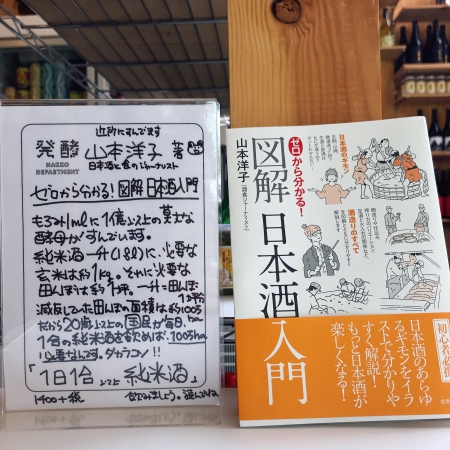 近所にすんでます
発酵
HAKKO
DEPARTMENT
山本洋子 著
日本酒と食のジャーナリスト
ゼロから分かる!図解 日本酒入門
もろみ1mlに1億以上の莫大な
酵母がすんでいます。
純米酒一升(1.8ℓ)に必要な
玄米は約1kg。それに必要な
田んぼは約1坪。一升=田んぼ
1坪
減反していた田んぼの面積は約100万
ha
だから20歳以上の国民が毎日
1合の純米酒を飲めば、100万ha
必要なんです。ダカラコン!!
「1日1合 以上 純米酒」
1400+税
ゼロから分かる!
図解 日本酒入門
山本洋子
[酒食ジャーナリスト]
日本酒のギモン
酒造りのすべて
初心者必携
日本酒のあらゆ
るギモンをイラ
ストで分かりや
すく解説!
もっと日本酒が
楽しくなる!